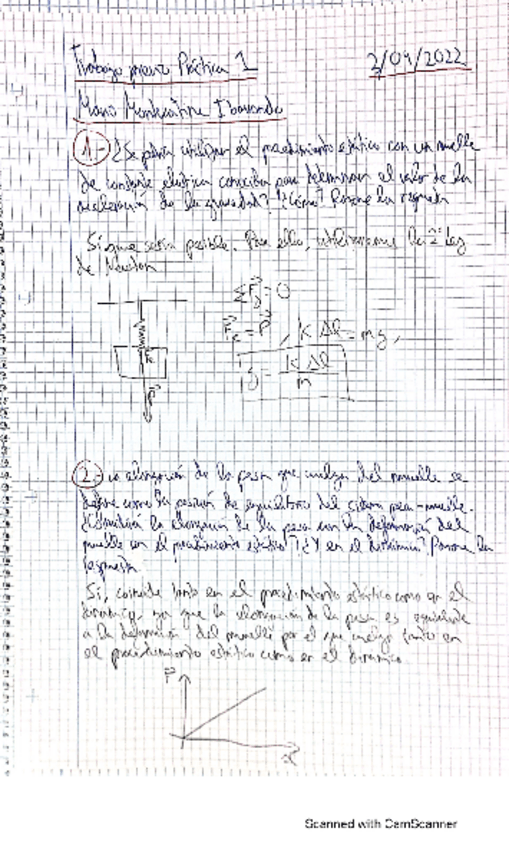 Trabajo previo Práctica 1 2/04/2022
1.- ¿Se podría utilizar el procedimiento estático con un muelle
de constante elástica conocida para determinar el valor de la
aceleración de la gravedad? ¿Cómo? Razone la respuesta
Sí que sería posible. Para ello, utilizaremos la 2ª Ley
de Newton
ΣF = 0
F = P
k Δl = mg
g = k Δl / m
P
2. La elongación de la pesa que cuelga del muelle se
define como la posición de equilibrio del sistema pesa-muelle.
¿Coincidirá la elongación de la pesa con la deformación del
muelle en el procedimiento estático? ¿Y en el dinámico? Razone la
respuesta
Sí, coincide tanto en el procedimiento estático como en el
dinámico, ya que la elongación de la pesa es equivalente
a la deformación del muelle por el que cuelga tanto en
el procedimiento estático como en el dinámico.
P
Scanned with CamScanner